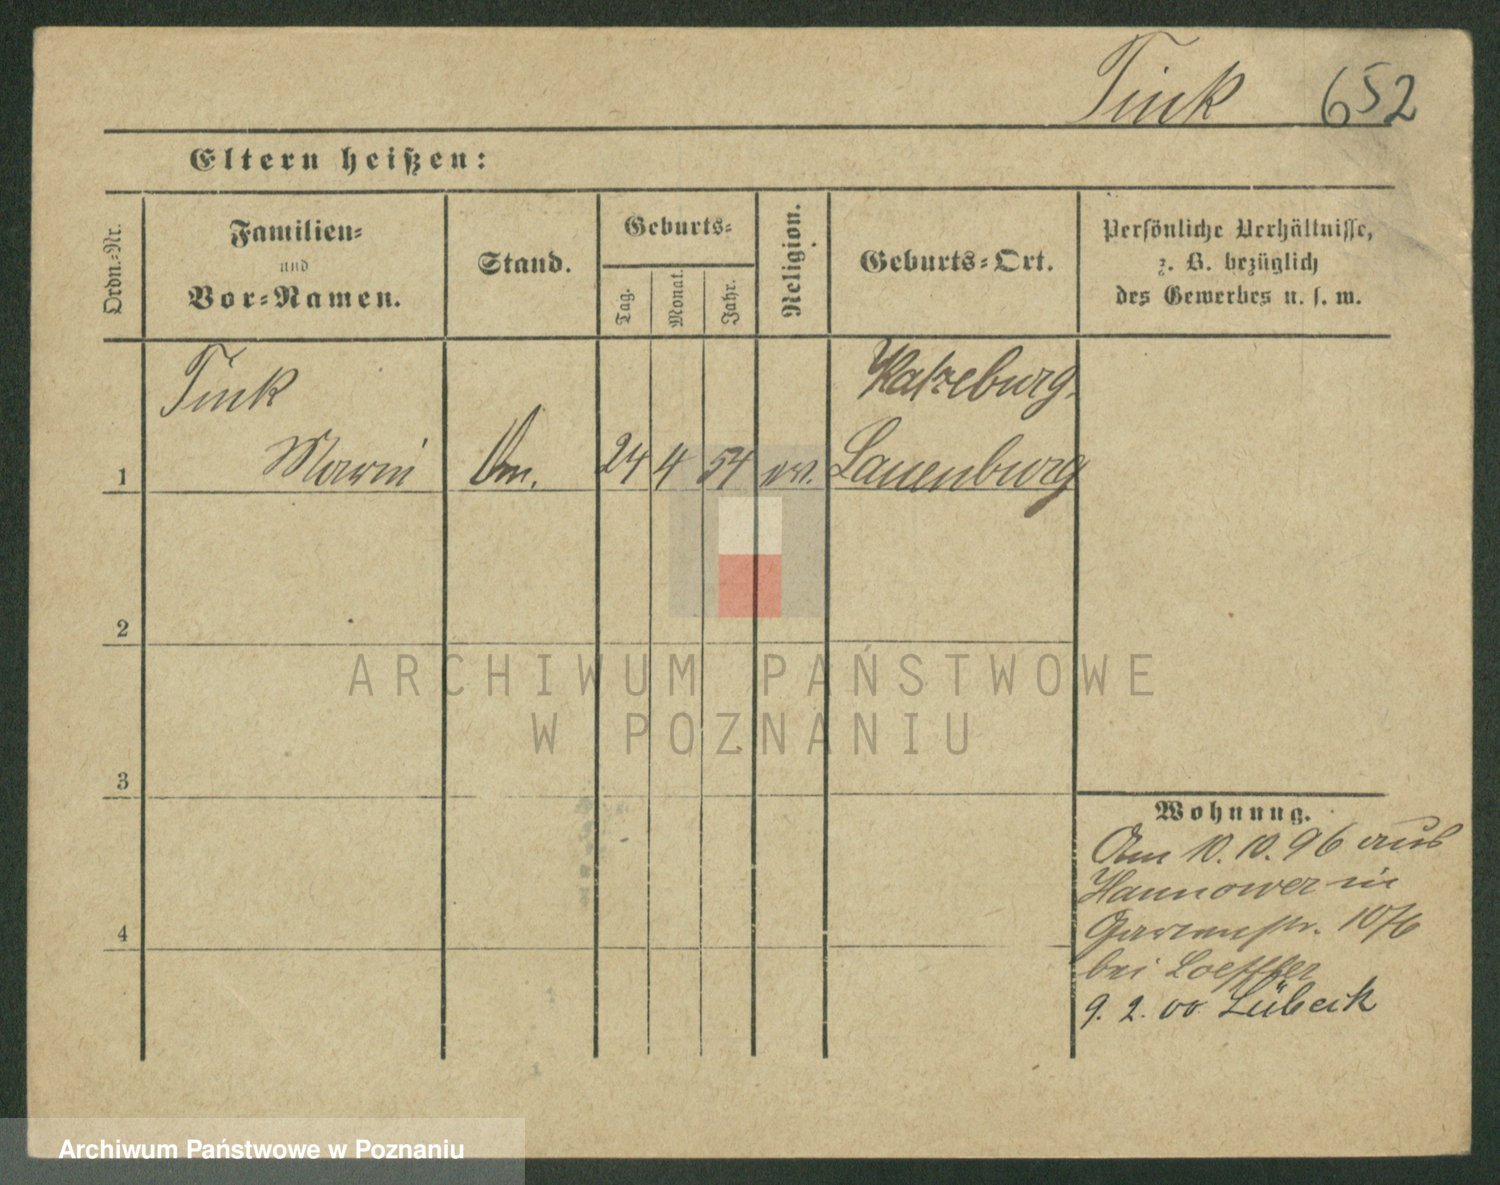 Tink 652
Eltern heißen:
Ordn.-Nr.
Familien-
und
Vor-Namen.
Stand.
Geburts-
Tag.
Monat.
Jahr.
Religion.
Geburts-Ort.
Persönliche Verhältnisse,
z. B. bezüglich
des Gewerbes u. s. w.
Tink Ratzeburg
1 24 4 54 ev. Lauenburg
2
ARCHIWUM PAŃSTWOWE
W POZNANIU
3
Wohnung.
Am 10.10.96 aus
Hannover in
4
Gartenstr.
bei Loeffler
9. 2. 00 Lübeck
Archiwum Państwowe w Poznaniu